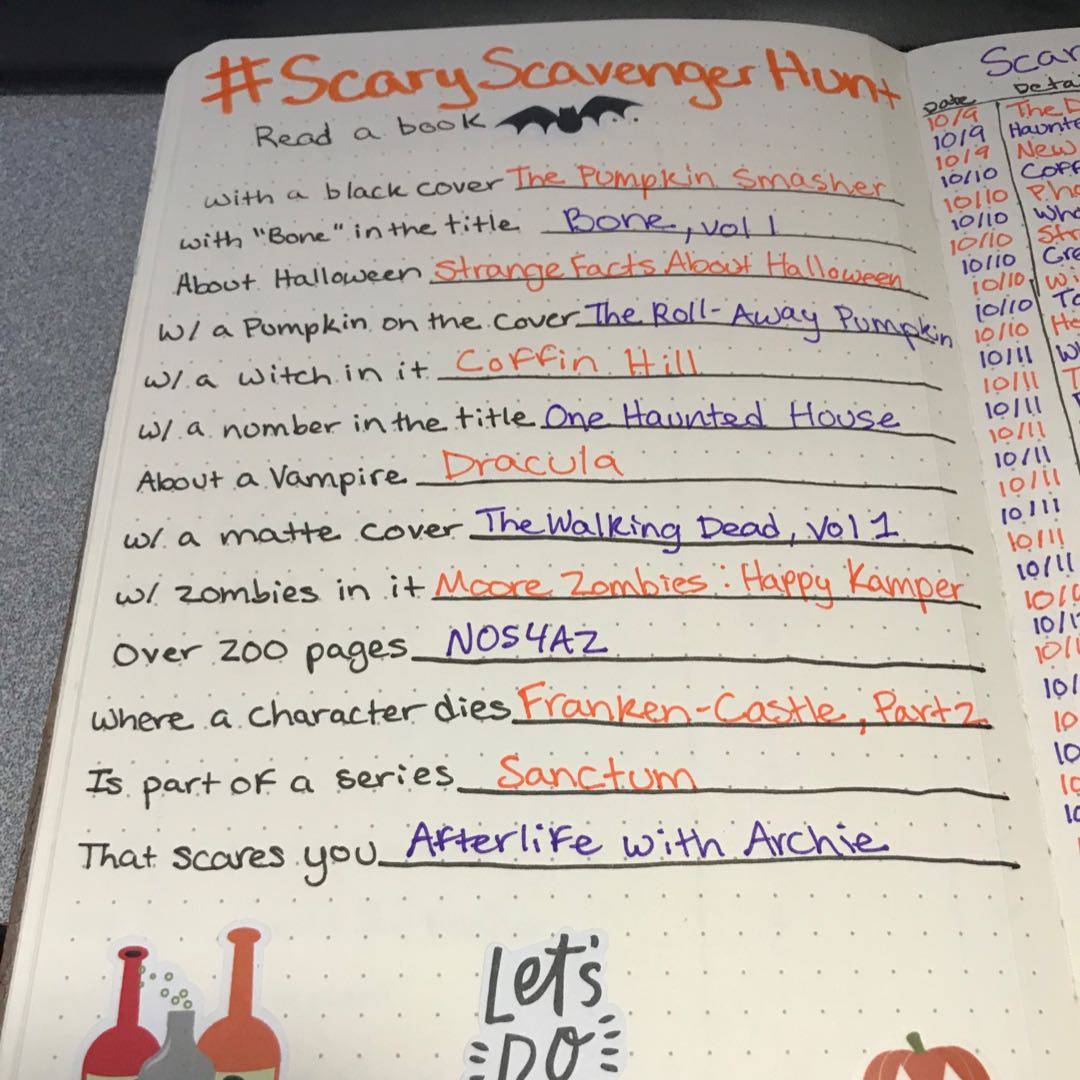 #ScaryScavengerHunt
Read a book
with a black cover The Pumpkin Smasher
with "Bone" in the title Bone, vol 1
About Halloween Strange Facts About Halloween
w/ a Pumpkin on the cover The Roll-Away Pumpkin
w/ a witch in it Coffin Hill
w/ a number in the title One Haunted House
About a Vampire Dracula
w/ a matte cover The Walking Dead, Vol 1
w/ zombies in it Moore Zombies: Happy Kamper
Over 200 pages NOS4A2
where a character dies Franken-Castle, Part 2
Is part of a series Sanctum
That scares you Afterlife with Archie
Let's
DO
Date
10/9 The
10/9
10/9 New
10/10
10/10
10/10
10/10
10/10
10/10
10/10
10/10
10/11
10/11
10/11
10/11
10/11
10/11
10/11
10/11
10/11